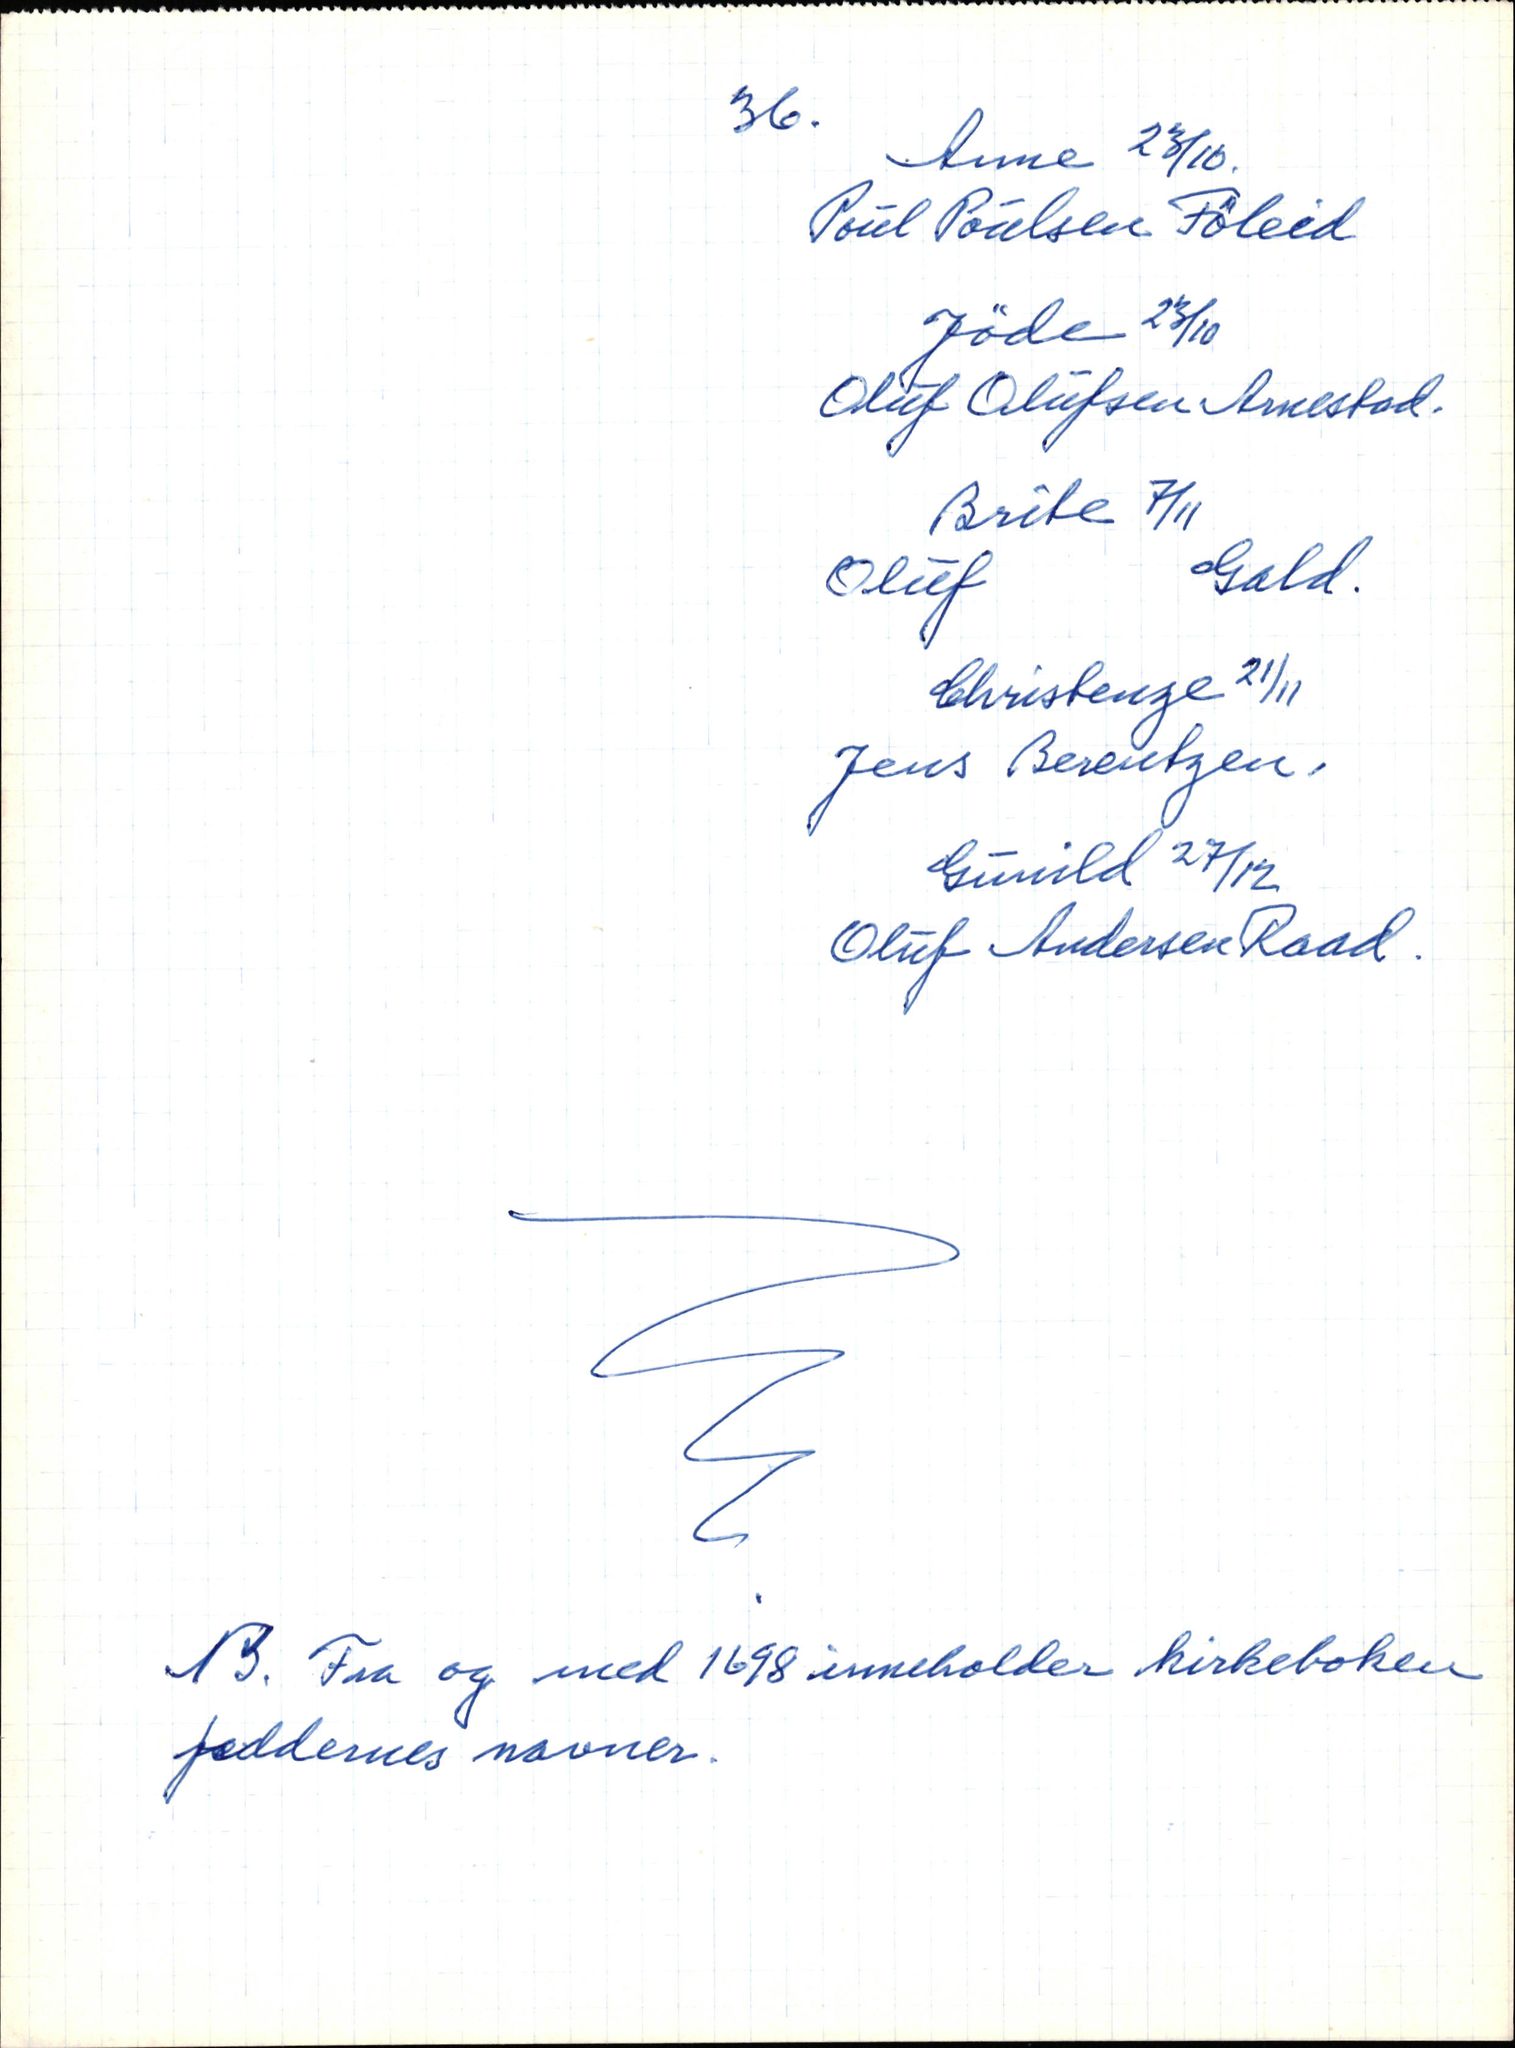 36.
Anne 23/10.
Poul Poulsen Föleid
Jöde 23/10
Oluf Olufsen Arnestad.
Brite 7/11
Oluf Gald.
Christenze 21/11
Jens Berentzen.
Gunild 27/12
Oluf Andersen Raad.
NB. Fra og med 1698 inneholder kirkeboken
faddernes navner.